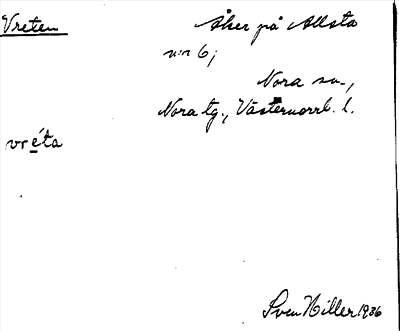 Vreten
Åker på Allsta
n:r 6;
Nora sn.,
Nora tg., Västernorrl. l.
vréta
Sven Hiller 1936